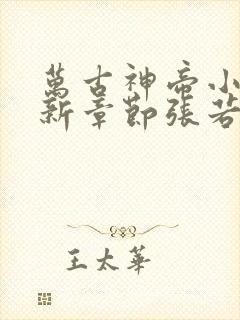 萬古神帝小
新章節張若
王太華